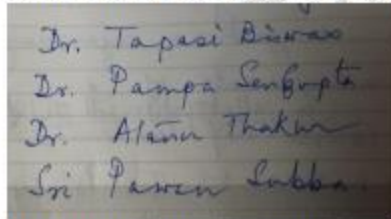 Dr. Tapasi Biswas
Dr. Pampa SenGupta
Dr. Thakur
Sri Pawan Subba